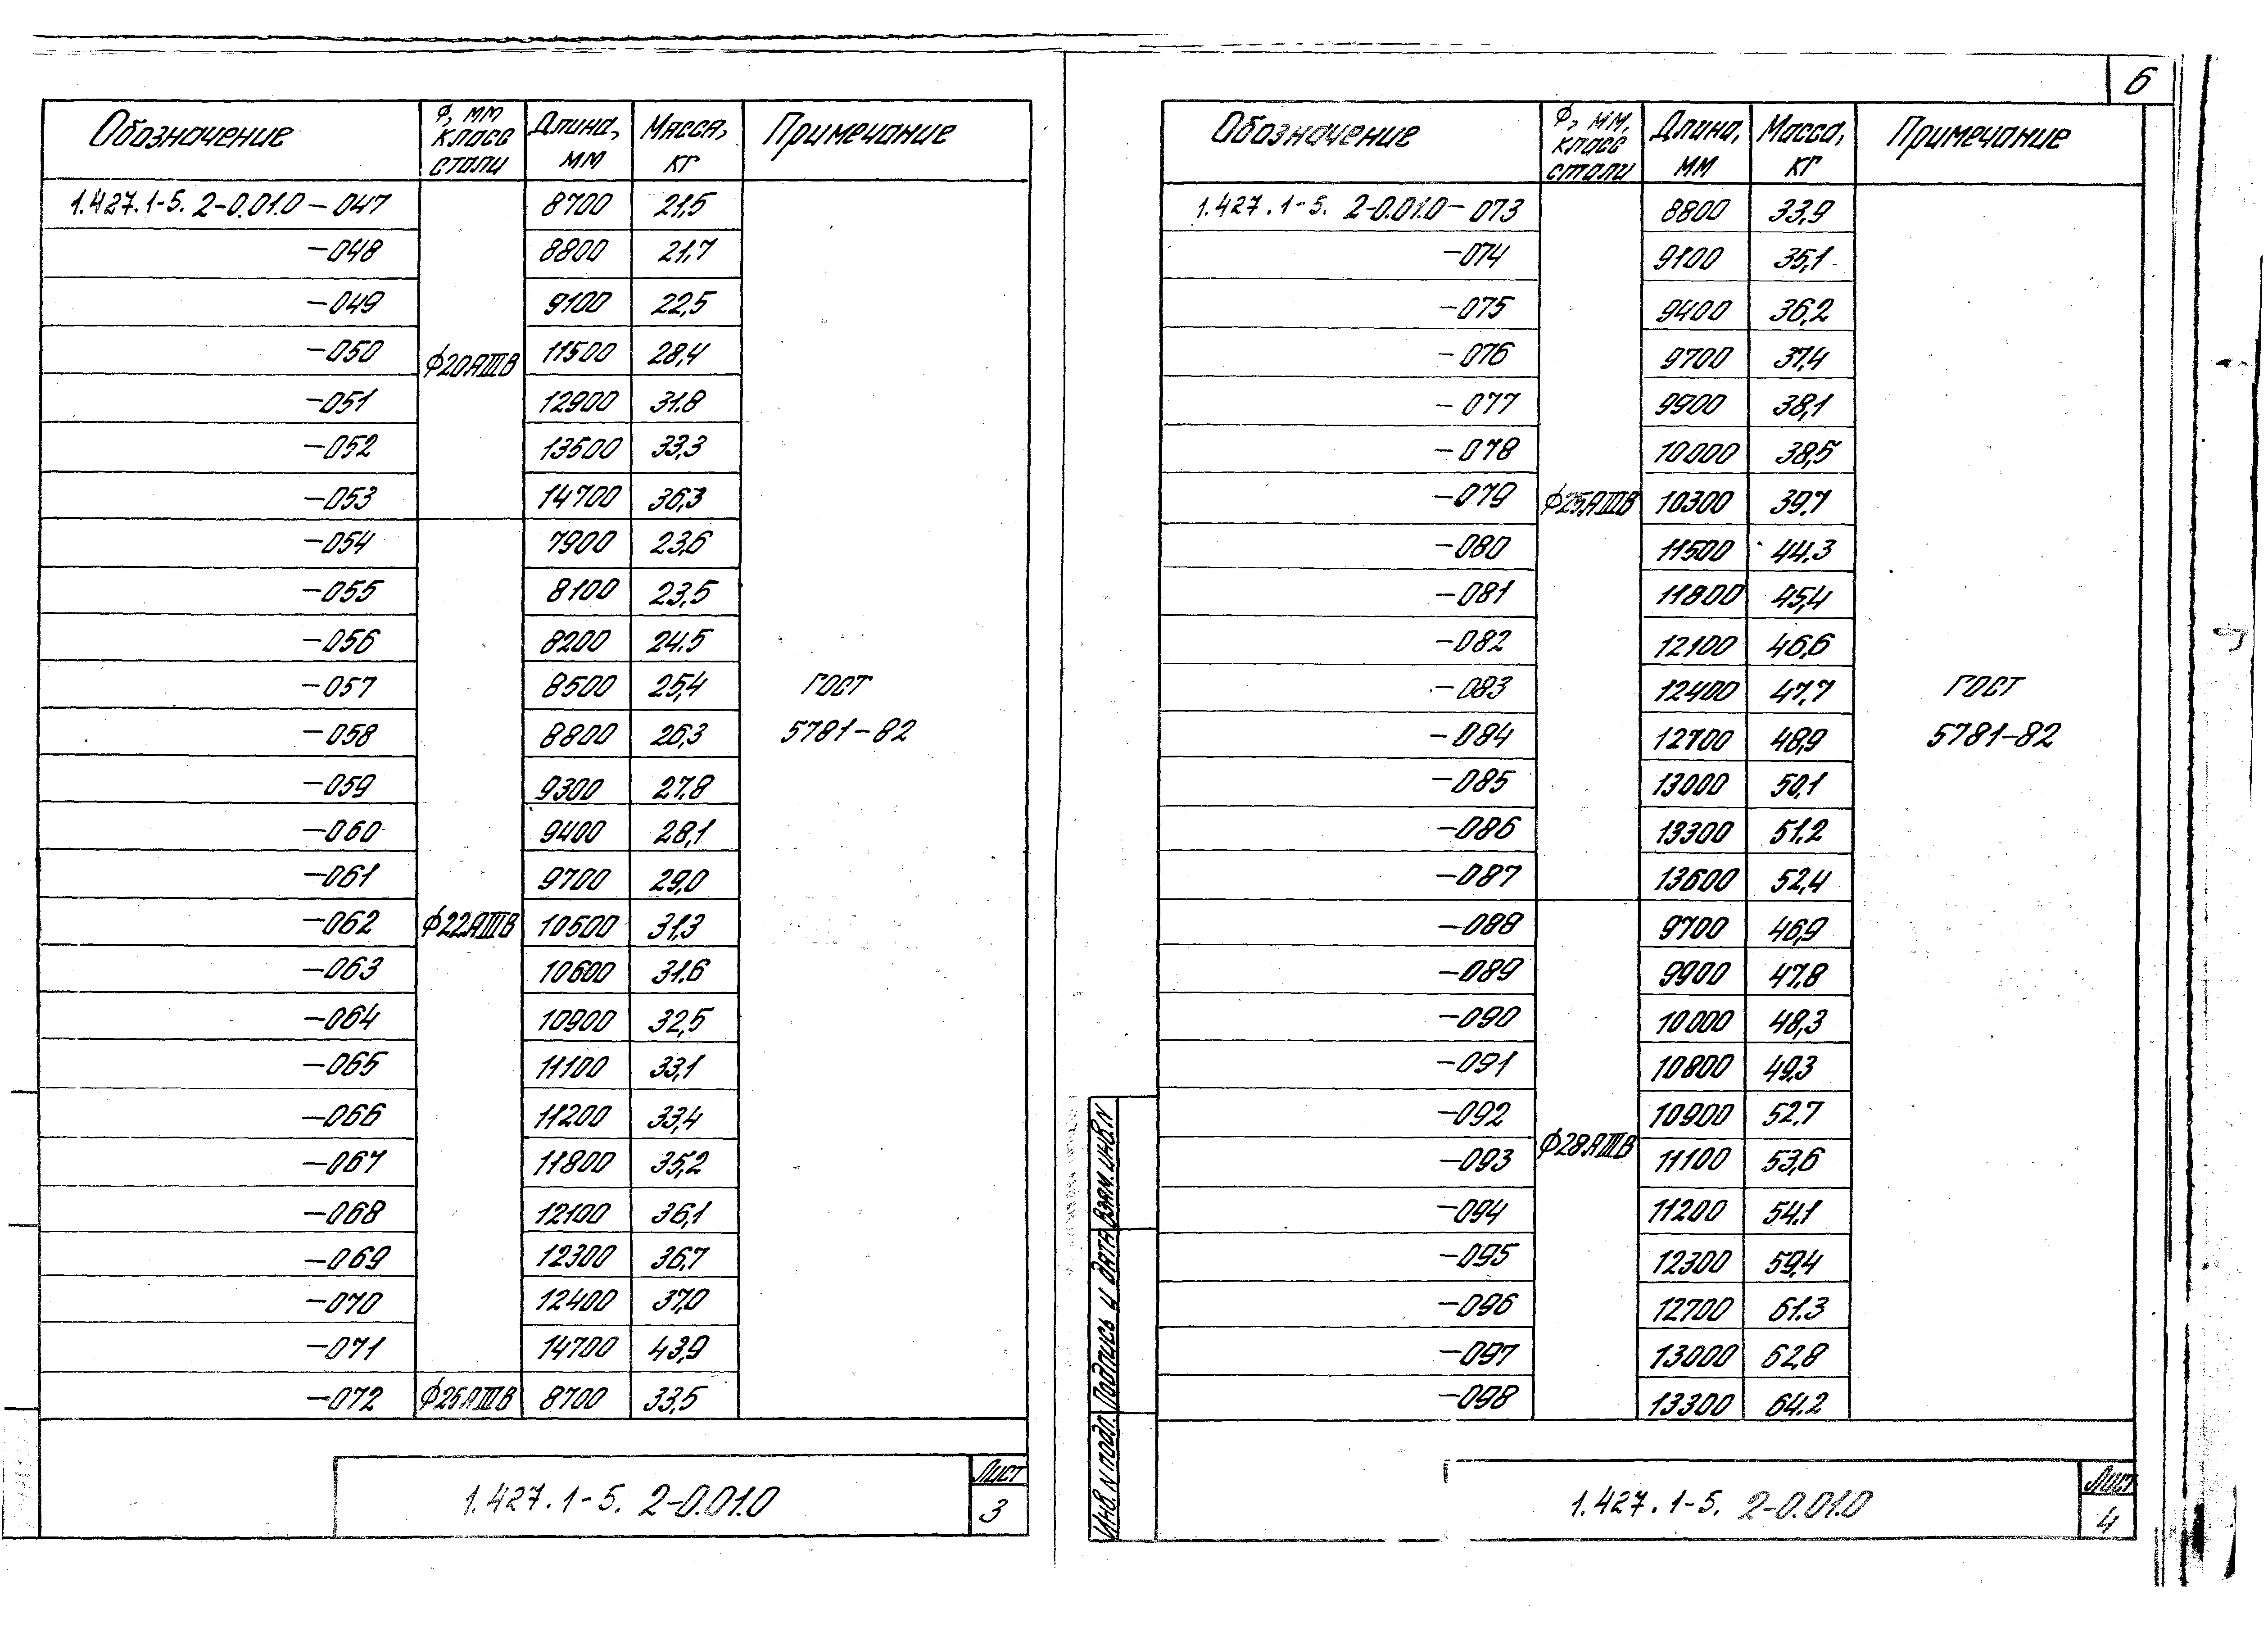 6
Обозначение Ф, мм класс стали Длина, мм Масса, кг Примечание
1.427.1-5. 2-0.01.0 -047 8700 21,5
-048 8800 21,7
-049 9100 22,5
-050 ф20АIIIВ 11500 28,4
-051 12900 31.8
-052 13500 33,3
-053 14700 36,3
-054 7900 23,6
-055 8100 23,5
-056 8200 24.5
-057 8500 25,4 ГОСТ
-058 8800 26,3 5781-82
-059 9300 27.8
-060 9400 28,1
-061 9700 29,0
-062 ф22АIIIВ 10500 31,3
-063 10600 31.6
-064 10900 32,5
-065 11100 33,1
-066 11200 33,4
-067 11800 35,2
-068 12100 36,1
-069 12300 36,7
-070 12400 37,0
-071 14700 43,9
-072 ф25АIIIВ 8700 33,5
1.427.1-5. 2-0.01.0
Лист
3
Обозначение Ф, мм, класс стали Длина, мм Масса, кг Примечание
1.427.1-5. 2-0.01.0-073 8800 33,9
-074 9100 35,1
-075 9400 36,2
-076 9700 37,4
-077 9900 38,1
-078 10000 38,5
-079 ф25АIIIВ 10300 39.7
-080 11500 44.3
-081 11800 45,4
-082 12100 46,6
-083 12400 47.7 ГОСТ
-084 12700 48,9 5781-82
-085 13000 50,1
-086 13300 51.2
-087 13600 52,4
-088 9700 46,9
-089 9900 47,8
-090 10000 48,3
-091 10800 49.3
-092 10900 52.7
-093 ф28АIIIВ 11100 53,6
-094 11200 54.1
-095 12300 59,4
-096 12700 61.3
-097 13000 62,8
-098 13300 64.2
Инв. N подл. Подпись и дата Взам. инв. N
1.427.1-5. 2-0.01.0
Лист
4